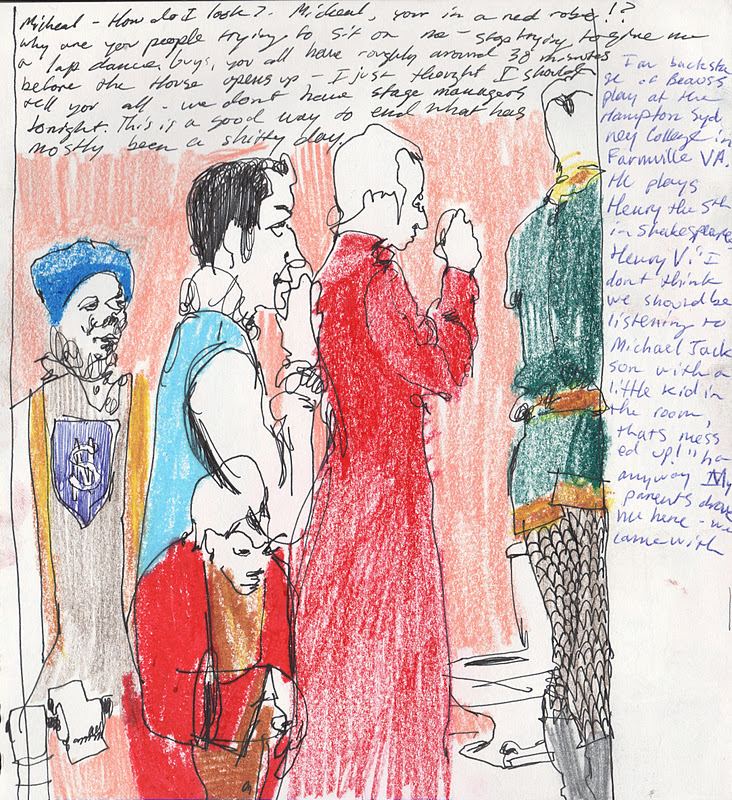 Micheal - How do I look? - Micheal, your in a red robe!!?
why are you people trying to sit on me - stop trying to give me
a lap dance, buys, you all have roughly around 38 minutes
before the House opens up - I just thought I should
tell you all - we dont have stage managers
tonight. This is a good way to end what has
mostly been a shitty day.
I'm backsta
ge of Beauss
play at the
Hampton Syd
ney College in
Farmville VA.
He plays
Henry the 5th
in Shakespeare
Henry V: I
dont think
we should be
listening to
Michael Jack
son with a
little kid in
the room,
thats mess
ed up!" ha
anyway My
parents drove
me here - we
came with